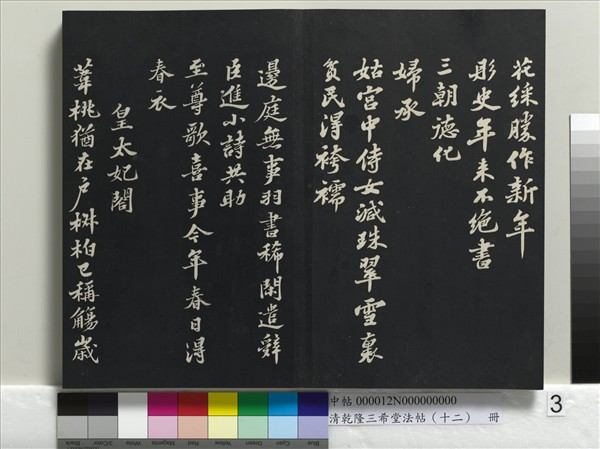 花綵勝作新年
彤史年來不絕書
三朝德化
婦承
姑宮中侍女減珠翠雪裏
貧民得袴襦
邊庭無事羽書稀閑遣辭
臣進小詩共助
至尊歌喜事今年春日得
春衣
皇太妃閣
葦桃猶在戶椒柏已稱觴歲
中帖 000012N000000000
清乾隆三希堂法帖（十二） 冊
3
Black
3/Color
White
Magenta
Red
Yellow
Green
Cyan
Blue